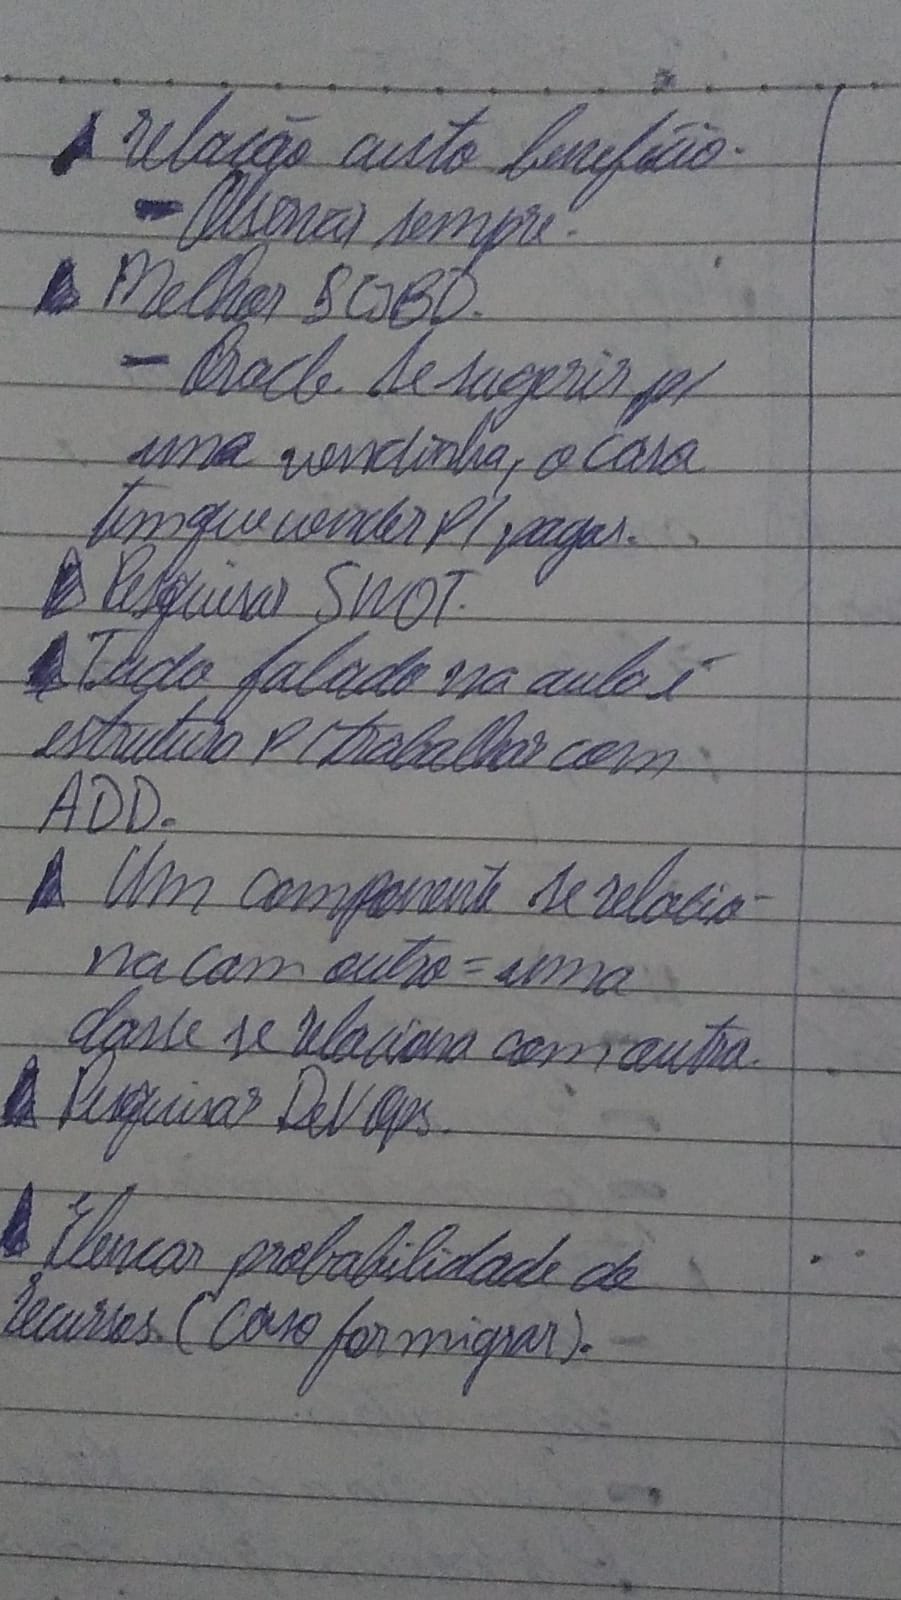 relação custo benefício.
- Observar sempre.
Melhor SGBD.
- Oracle se sugerir p/
uma vendinha, o cara
tem que vender p/ pagar.
Pesquisar SWOT.
Tudo falado na aula é
estrutura p/ trabalhar com
ADD.
Um componente se relacio-
na com outro = uma
classe se relaciona com outra.
Pesquisar DevOps.
Elencar probabilidade de
recursos. (Caso for migrar).